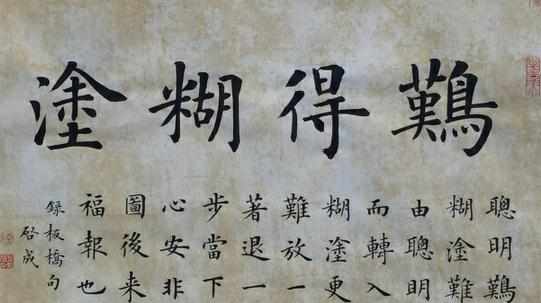 難得糊塗
聰明難
糊塗難
由聰明
而轉入
糊塗更
難放一
著退一
步當下
心安非
圖後來
福報也
録板橋句
啓成